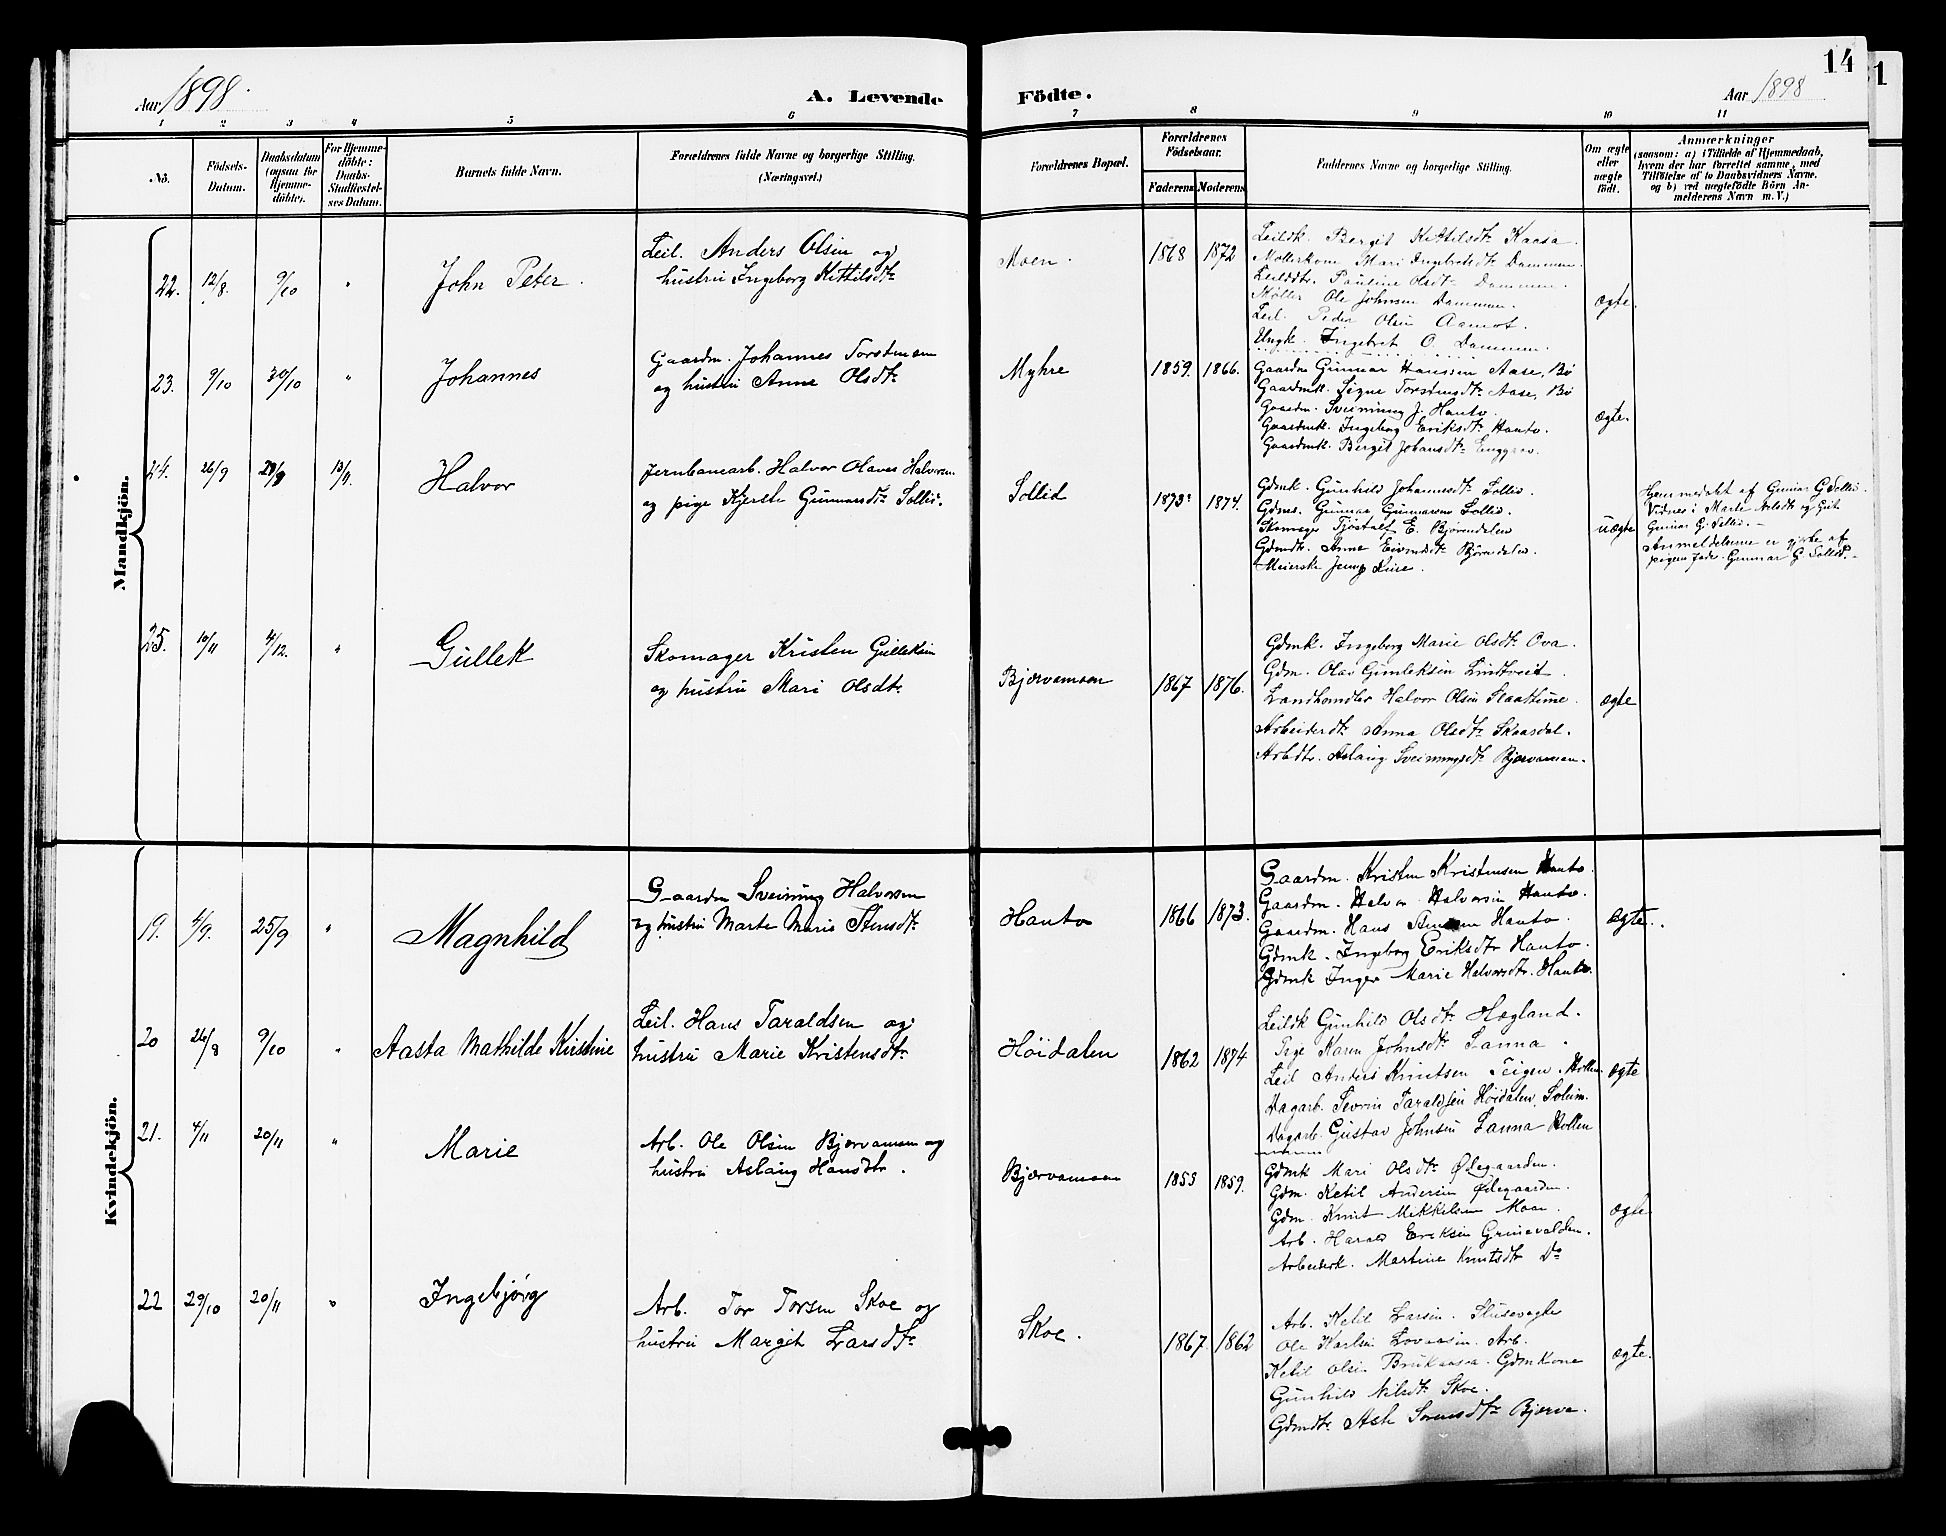 Aar 1898.
A. Levende Födte.
Aar 1898
14
1 2 3 4 5 6 7 8 9 10 11
No.
Födsels-Datum.
Daabsdatum (ogsaa for Hjemme-döbte).
For Hjemme-döbte: Daabs-Stadfæstel-ses Datum.
Barnets fulde Navn.
Forældrenes fulde Navne og borgerlige Stilling.
(Næringsvei.)
Forældrenes Bopæl.
Forældrenes Födselsaar.
Faderens Moderens
Faddernes Navne og borgerlige Stilling.
Om ægte eller uægte födt.
Anmærkninger
(saasom: a) i Tilfælde af Hjemmedaab,
hvem der har forrettet samme, med
Tilföielse af to Daabsvidners Navne,
og b) ved uægtefödte Börn An-
melderens Navn m. V.)
Mandkjön.
22. 12/8. 9/10 " John Peter.
Leil. Anders Olsen og
hustru Ingeborg Kittilsdtr
Moen. 1868 1872
Leildk. Bergit Kittilsdtr Kaasa.
Møllerkone Mari Ingebretsdtr Dammen.
Leilddtr. Pauline Olsdtr Dammen.
Møller Ole Johnsen Dammen.
Leil. Peder Olsen Aamot.
Ungk. Ingebret O. Dammen.
ægte.
23. 9/10 30/10 " Johannes
Gaardm. Johannes Torstensen
og hustru Anne Olsdtr
Myhre 1859. 1866.
Gaardm Gunnar Hanssen Aase, Bø
Gaardmk. Signe Torstensdtr Aase, Bø
Gaardm. Sveinung J. Hanto.
Gaardmk. Ingeborg Eriksdtr Hanto.
Gaardmk. Bergit Johansdtr Enggrav.
ægte.
24. 26/9 29/9 13/11. Halvor
Jernbanearb. Halvor Olaves Halvorsen
og pige Kjersti Gunnarsdtr Sollid.
Sollid 1873 1874.
Gdmk. Gunhild Johannesdtr Sollid.
Gdms. Gunnar Gunnarsen Sollid.
Skomager Tjostolf E. Bjørndalen
Gdmdtr. Anne Eivindsdtr Bjørndalen.
Meierske Jenny Kise.
uægte
Hjemmedøbt af Gunnar G Sollid.
Vidner: Marte Nilsdtr og Git
Gunnar G. Sollid.-
Anmeldelserne er gjorte af
pigens fader Gunnar G Sollid.-
25. 10/11 4/12. " Gullek
Skomager Kristen Gulleksen
og hustru Mari Olsdtr
Bjervamoen 1867 1876.
Gdmk. Ingeborg Marie Olsdtr Ova.
Gdm. Olav Gunleksen Lindtveit.
Landhandler Halvor Olsen Slaattune.
Arbeiderdtr Anna Olsdtr Skaardal.
Arbdtr. Aslaug Sveinungsdtr Bjervamoen.
ægte
Kvindekjön.
19. 4/9. 25/9 " Magnhild
Gaardm Sveinung Halvorsen
og hustru Marte Marie Stensdtr
Hanto 1866 1873.
Gaardm. Kristen Kristensen Hanto.
Gaardm. Halvor Halvorsen Hanto.
Gaardm. Hans Stensen Hanto.
Gdmk. Ingeborg Eriksdtr Hanto.
Gdmk Inger Marie Halvorsdtr. Hanto.
ægte.
20 26/8 9/10 " Aasta Mathilde Kirstine
Leil. Hans Taraldsen og
hustru Marie Kristensdtr
Höidalen 1862 1874
Leildk Gunhild Olsdtr Hægland.
Pige Karen Johnsdtr Lanna.
Leil Anders Knutsen Teigen. Hollen.
Dagarb. Sevrin Taraldsen Höidalen, Solum.
Dagarb. Gustav Johnsen Lanna Hollen
ægte
21. 4/11 20/11 " Marie
Arb. Ole Olsen Bjervamoen og
hustru Aslaug Hansdtr.
Bjervamoen 1853 1859.
Gdmk Mari Olsdtr Ødegaarden.
Gdm. Ketil Andersen Ødegaarden.
Gdm. Knut Mikkelsen Moen.
Arb. Harald Eriksen Grinevalden.
Arbeiderk. Martine Knutsdtr Do
ægte
22 29/10 20/11 " Ingebjörg
Arb. Tor Torsen Skoe og
hustru Margit Larsdtr
Skoe. 1867 1862
Arb. Ketil Larsen. Slusevogte
Ole Karlsen Lovaasen. Arb.
Ketil Olsen Brukaasa. Gdmkone
Gunhild Nilsdtr Skoe.
Gdmdtr. Aslı Sørensdtr Bjerva.
ægte.